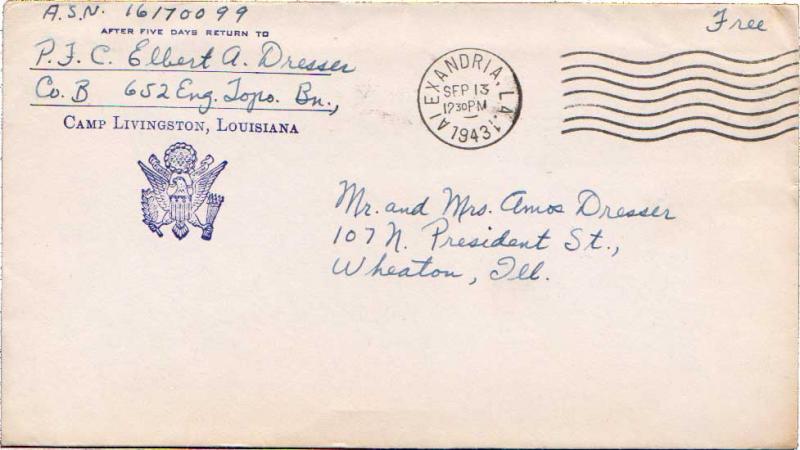 A.S.N. 16170099
AFTER FIVE DAYS RETURN TO
P.F.C. Elbert A. Dresser
Co. B 652 Eng. Topo. Bn.,
CAMP LIVINGSTON, LOUISIANA
ALEXANDRIA, LA. 1
SEP 13
12 30 PM
1943
Free
Mr. and Mrs. Amos Dresser
107 N. President St.,
Wheaton, Ill.